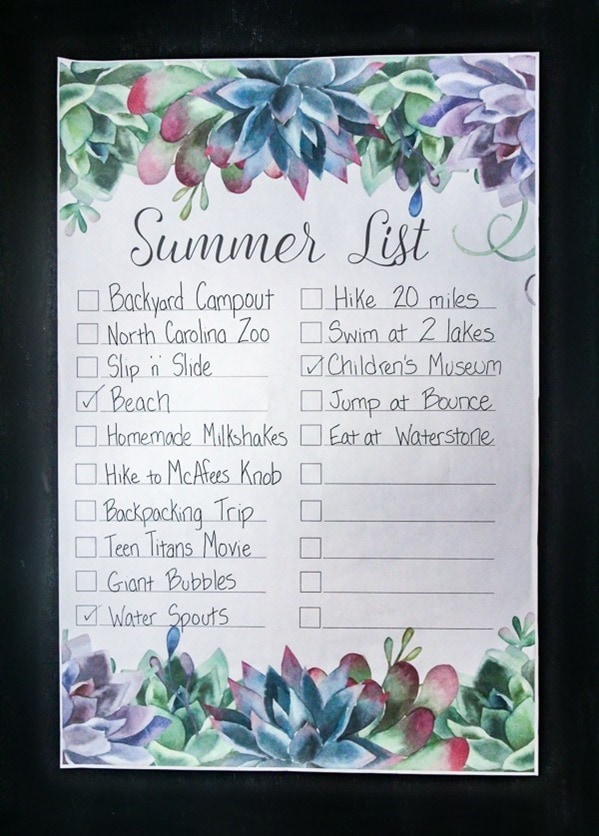 Summer List
Backyard Campout
North Carolina Zoo
Slip 'n' Slide
Beach
Homemade Milkshakes
Hike to McAfees Knob
Backpacking Trip
Teen Titans Movie
Giant Bubbles
Water Spouts
Hike 20 miles
Swim at 2 lakes
Children's Museum
Jump at Bounce
Eat at Waterstone